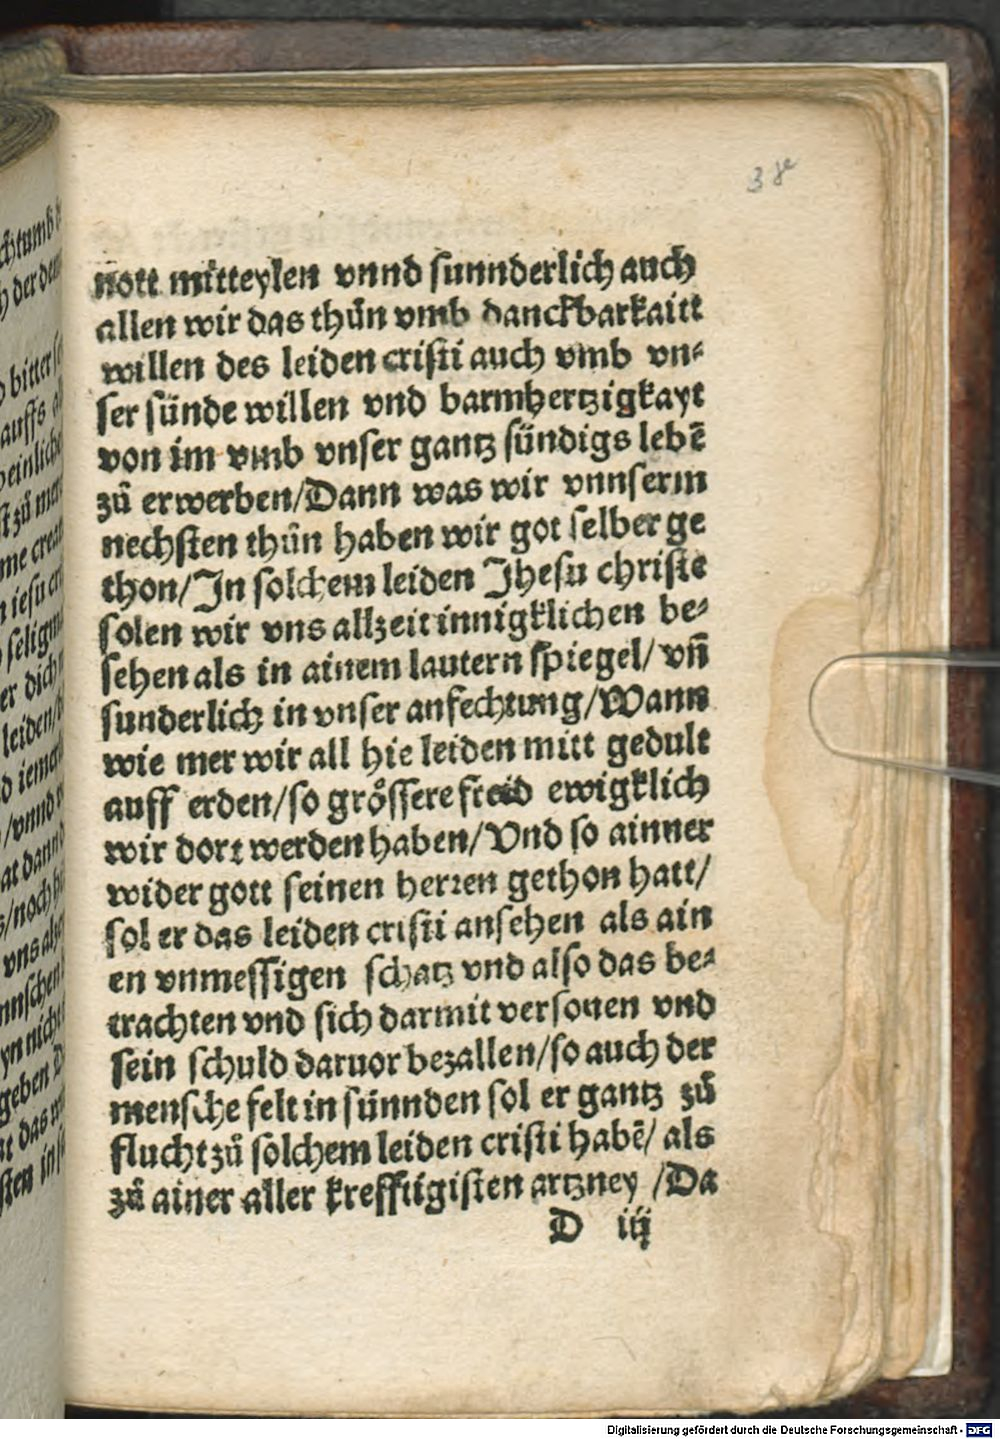 38e
nott mitteylen vnnd sunnderlich auch
allen wir das thůn vmb danckbarkaitt
willen des leiden cristi auch vmb vn⸗
ser sünde willen vnd barmhertzigkayt
von im vmb vnser gantz sündigs lebē
zů erwerben/Dann was wir vnnserm
nechsten thůn haben wir got selber ge
thon/In solchem leiden Jhesu christe
solen wir vns allzeit innigklichen be⸗
sehen als in ainem lautern spiegel/ vñ
sunderlich in vnser anfechtung/Wann
wie mer wir all hie leiden mitt gedult
auff erden/so grössere freid ewigklich
wir dort werden haben/Vnd so ainner
wider gott seinen herren gethon hatt/
sol er das leiden cristi ansehen als ain
en vnmessigen schatz vnd also das be⸗
trachten vnd sich darmit versonen vnd
sein schuld daruor bezallen/so auch der
mensche felt in sünnden sol er gantz zů
flucht zů solchem leiden cristi habē/ als
zů ainer aller krefftigisten artzney /Da
D iij
Digitalisierung gefördert durch die Deutsche Forschungsgemeinschaft - DFG